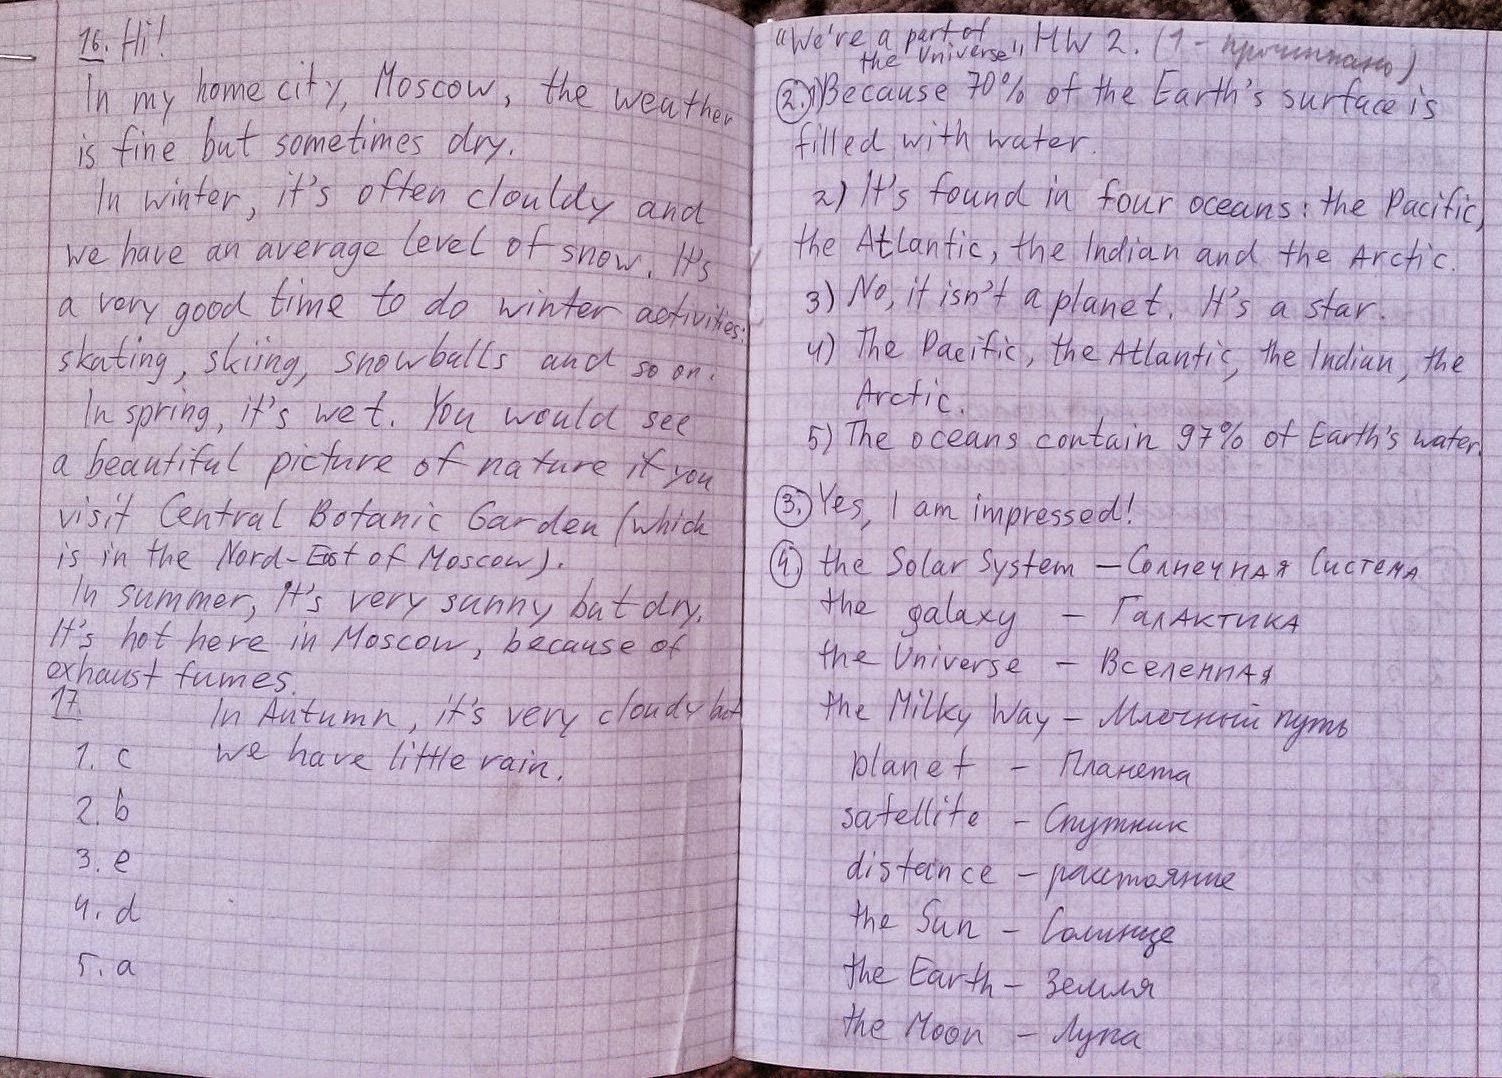 16. Hi!
In my home city, Moscow, the weather
is fine but sometimes dry.
In winter, it's often clouldy and
we have an average level of snow. It's
a very good time to do winter activities:
skating, skiing, snowballs and so on.
In spring, it's wet. You would see
a beautiful picture of nature if you
visit Central Botanic Garden (which
is in the Nord-East of Moscow).
In summer, it's very sunny but dry.
It's hot here in Moscow, because of
exhaust fumes.
In Autumn, it's very cloudy but
we have little rain.
17
1. c
2. b
3. e
4. d
5. a
"We're a part of
the Universe", HW 2. (1 - прочитано)
2. 1) Because 70% of the Earth's surface is
filled with water.
2) It's found in four oceans: the Pacific,
the Atlantic, the Indian and the Arctic.
3) No, it isn't a planet. It's a star.
4) The Pacific, the Atlantic, the Indian, the
Arctic.
5) The oceans contain 97% of Earth's water.
3. Yes, I am impressed!
4. the Solar System — Солнечная Система
the galaxy - Галактика
the Universe - Вселенная
the Milky Way - Млечный путь
planet - Планета
satellite - Спутник
distance - расстояние
the Sun - Солнце
the Earth - Земля
the Moon - Луна